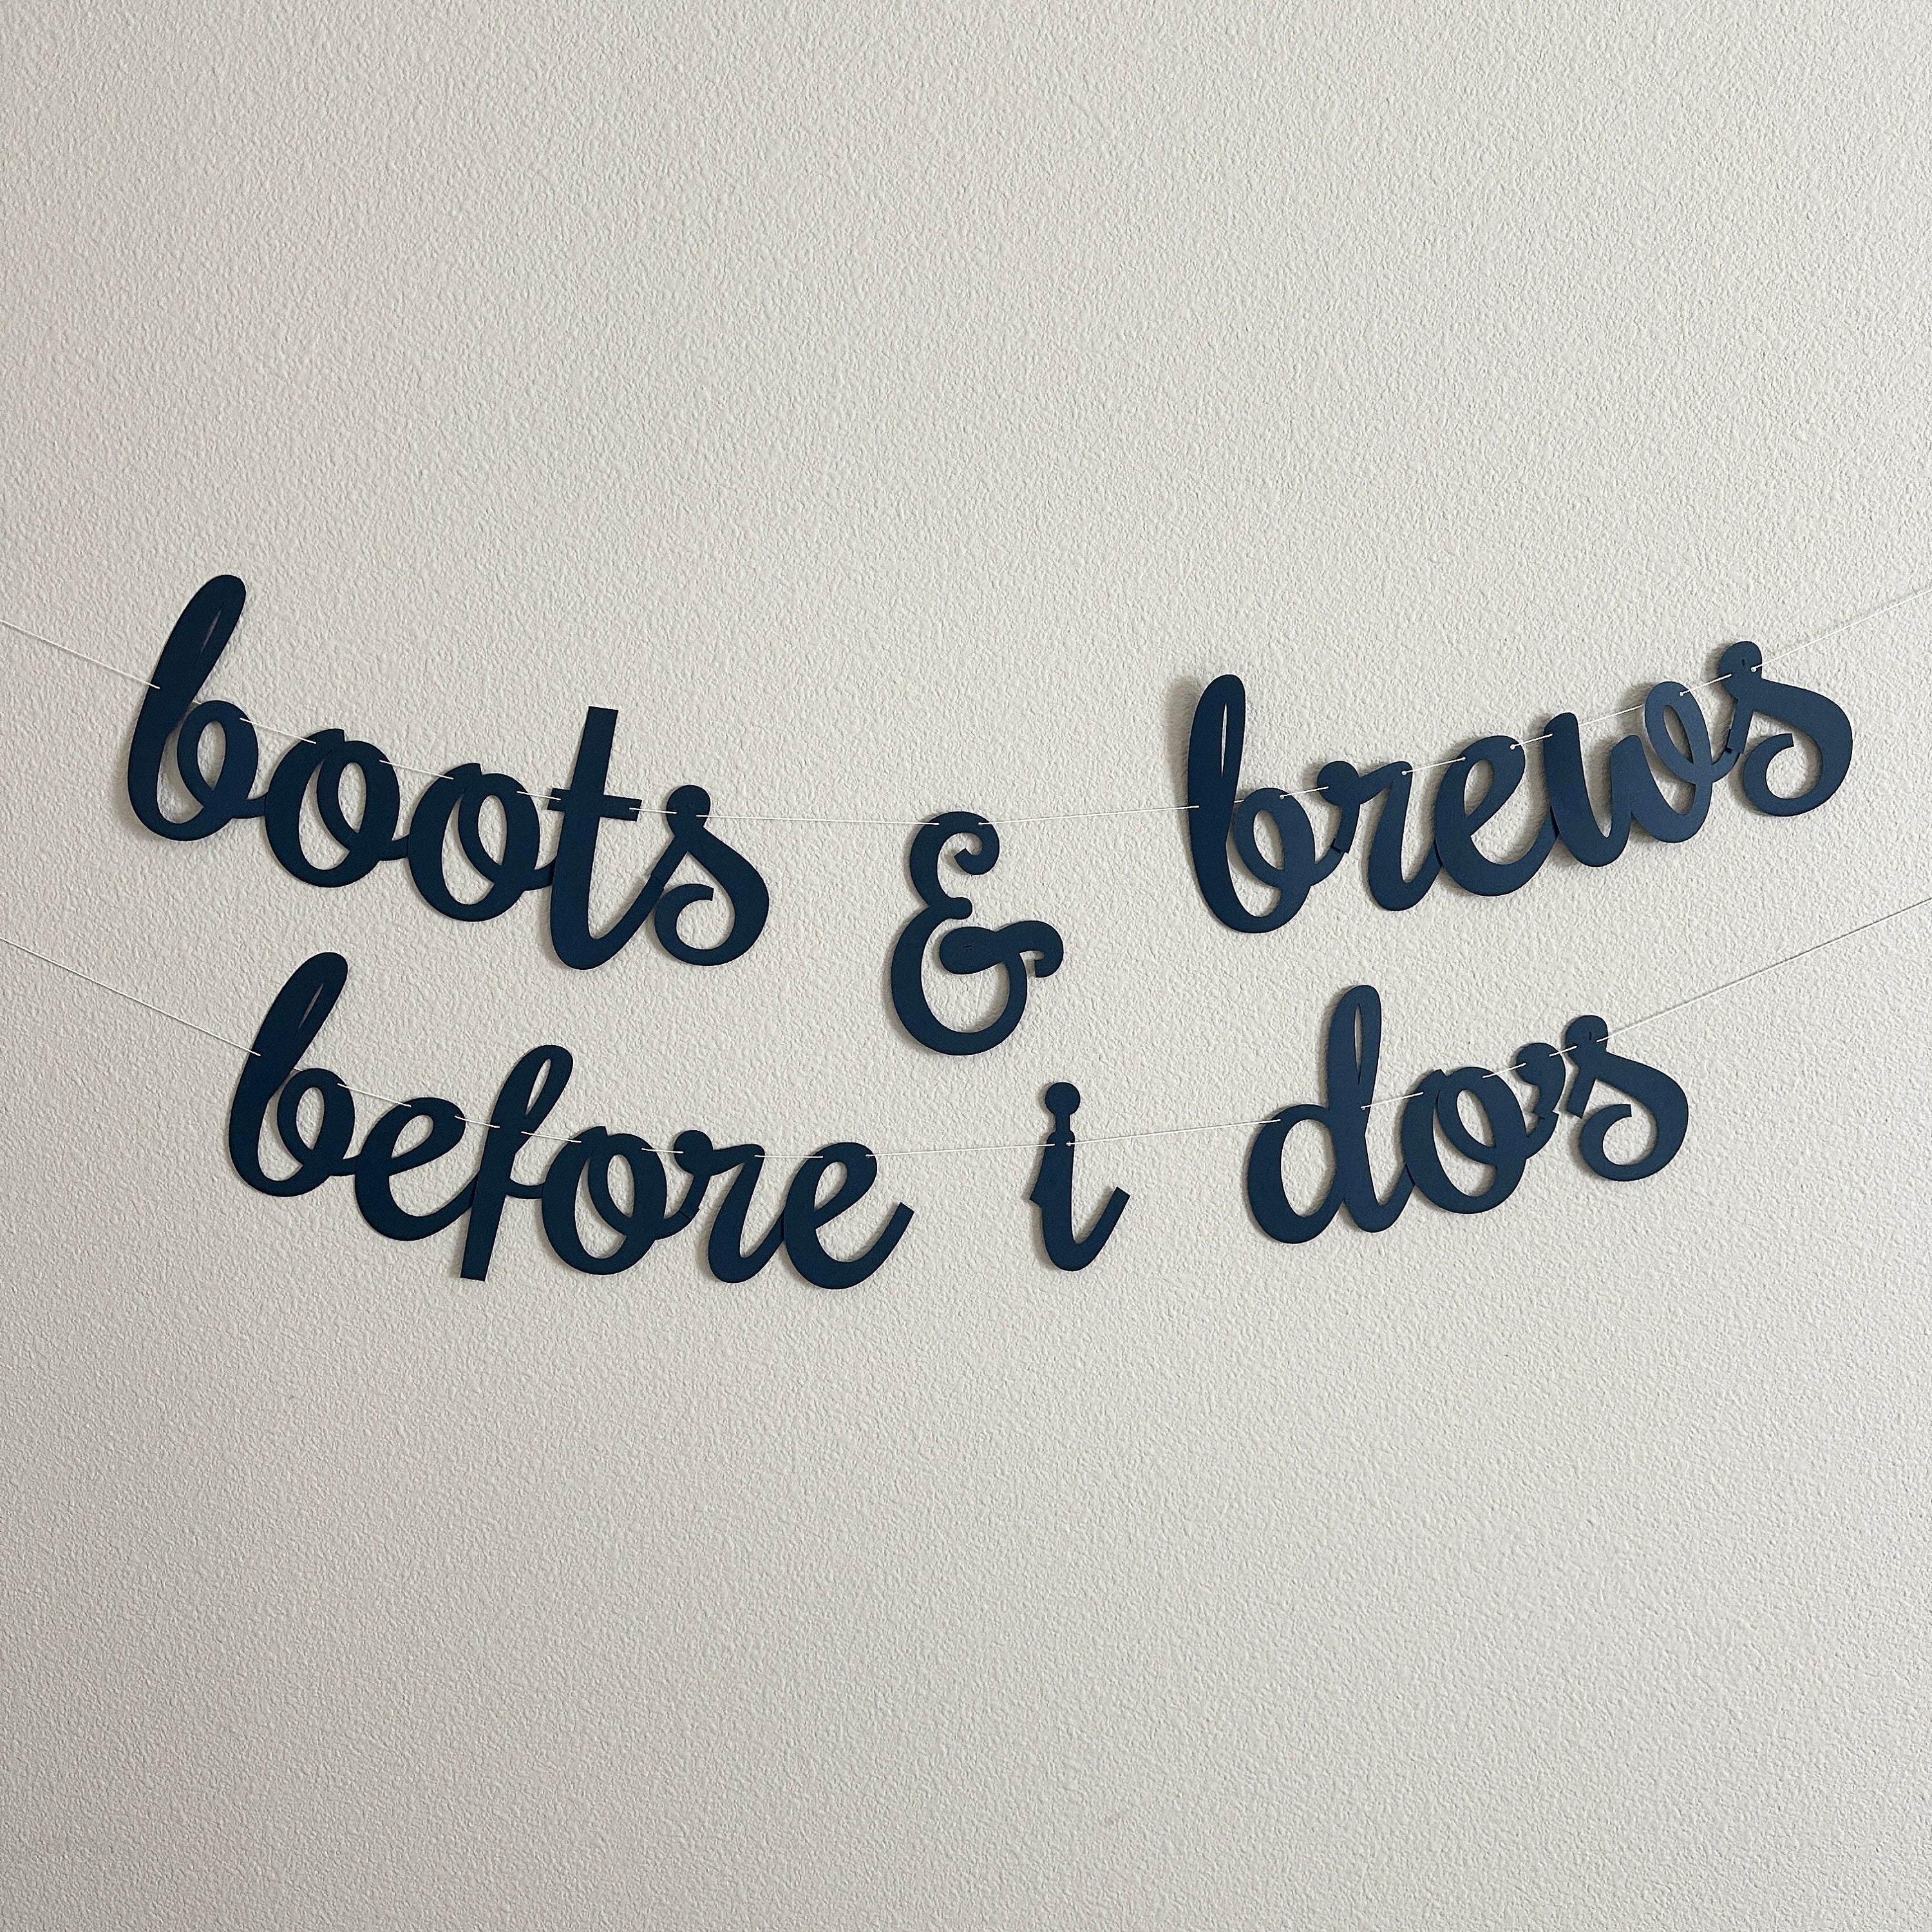 boots & brews
before i do's